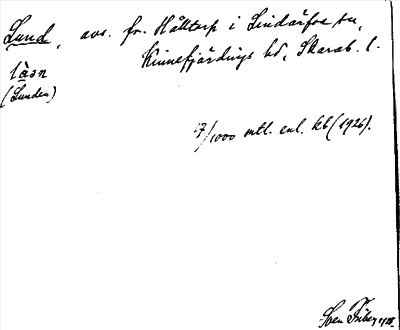 Lund, avs. fr. Hålltorp i Lindärfva sn,
Kinnefjärdings hd, Skarab. l.
làsn
(Lunden)
7/1000 mtl. enl. kb (1926).
Sven